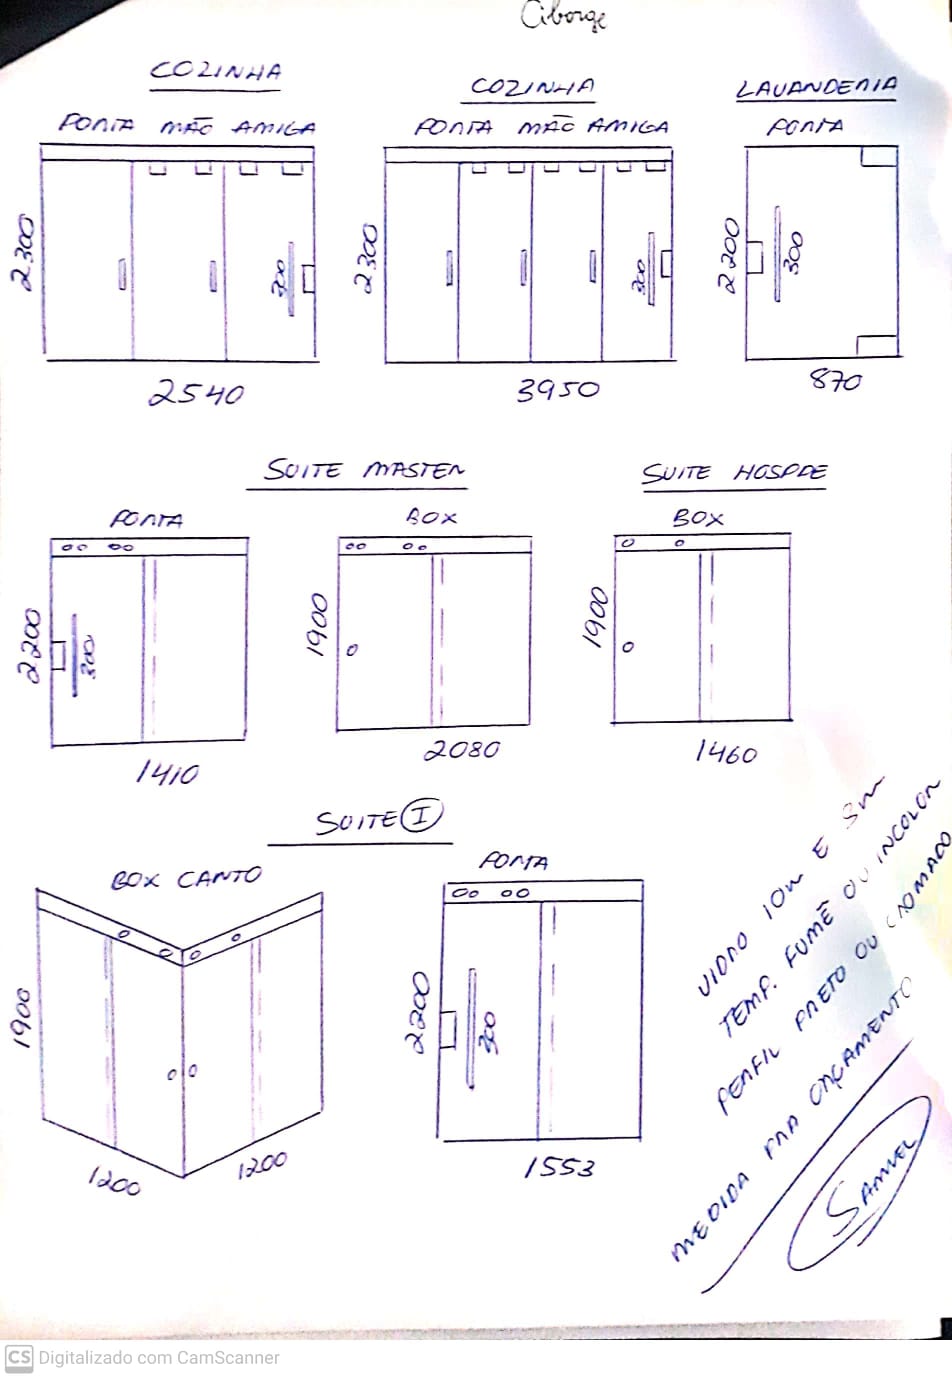 Ciborge
COZINHA
PORTA MÃO AMIGA
2300
300
2540
COZINHA
PORTA MÃO AMIGA
2300
300
3950
LAVANDERIA
PORTA
2200
300
870
SUITE MASTER
PORTA
2200
300
1410
BOX
1900
2080
SUITE HOSPDE
BOX
1900
1460
SUITE I
BOX CANTO
1900
1200
1200
PORTA
2200
300
1553
VIDRO 10m E 8m
TEMP. FUMÊ OU INCOLOR
PERFIL PRETO OU CROMADO
MEDIDA PRA ORÇAMENTO
SAMUEL
CS Digitalizado com CamScanner